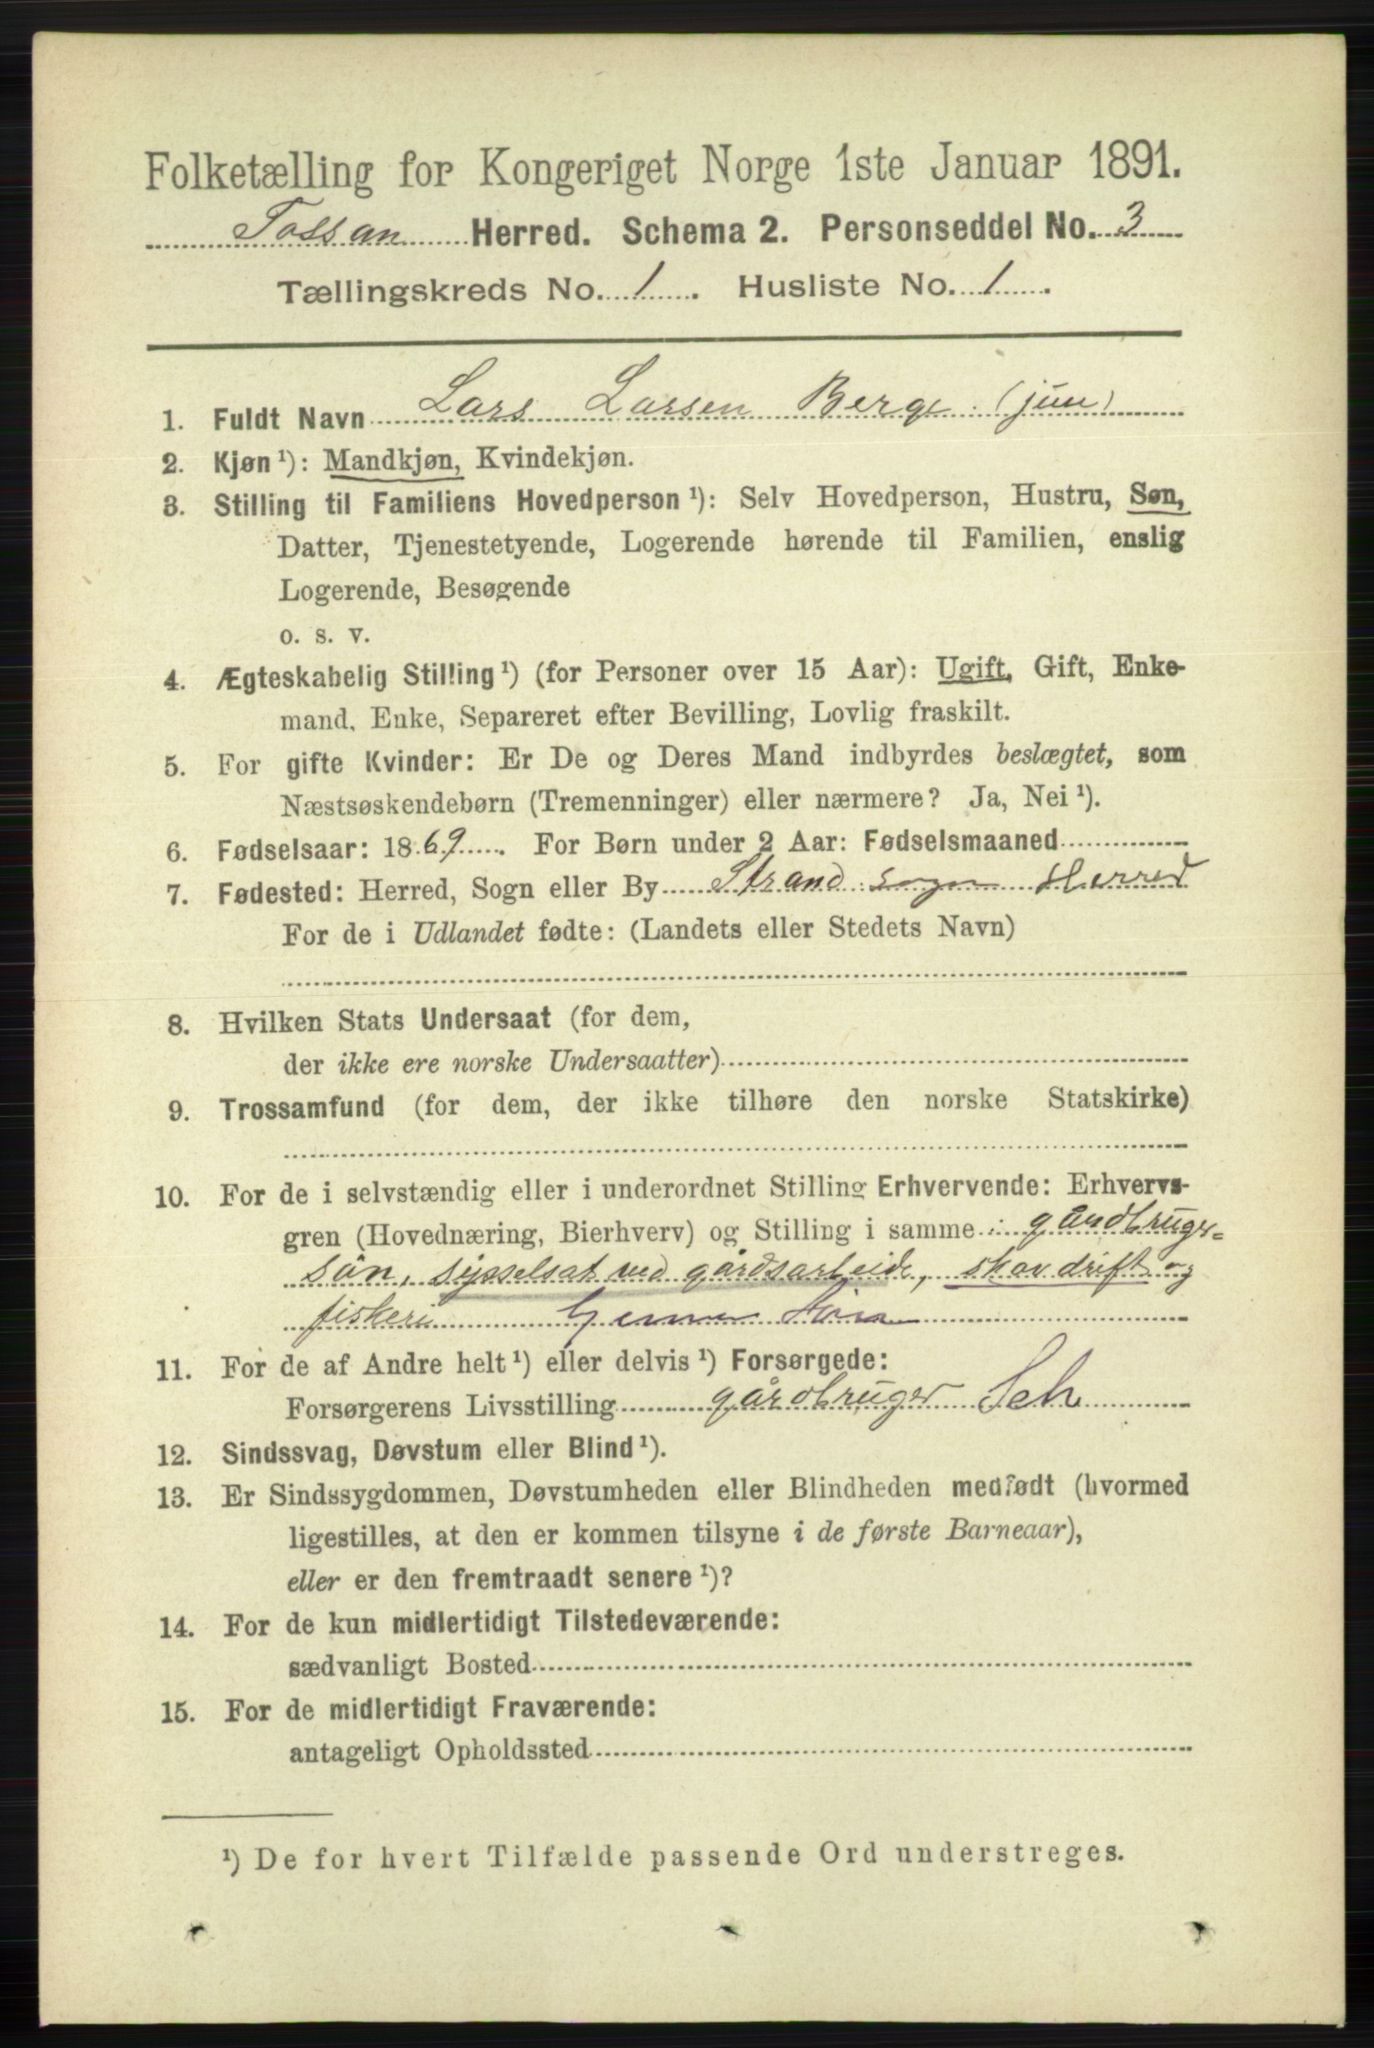 Folketælling for Kongeriget Norge 1ste Januar 1891.
Fossan Herred. Schema 2. Personseddel No. 3
Tællingskreds No. 1. Husliste No. 1.
1. Fuldt Navn Lars Larsen Berge (jun)
2. Kjøn¹): Mandkjøn, Kvindekjøn.
3. Stilling til Familiens Hovedperson¹): Selv Hovedperson, Hustru, Søn,
Datter, Tjenestetyende, Logerende hørende til Familien, enslig
Logerende, Besøgende
o. s. v.
4. Ægteskabelig Stilling¹) (for Personer over 15 Aar): Ugift, Gift, Enke-
mand, Enke, Separeret efter Bevilling, Lovlig fraskilt.
5. For gifte Kvinder: Er De og Deres Mand indbyrdes beslægtet, som
Næstsøskendebørn (Tremenninger) eller nærmere? Ja, Nei¹).
6. Fødselsaar: 1869. For Børn under 2 Aar: Fødselsmaaned
7. Fødested: Herred, Sogn eller By Strand sogn Herred
For de i Udlandet fødte: (Landets eller Stedets Navn)
8. Hvilken Stats Undersaat (for dem,
der ikke ere norske Undersaatter)
9. Trossamfund (for dem, der ikke tilhøre den norske Statskirke)
10. For de i selvstændig eller i underordnet Stilling Erhvervende: Erhvervs-
gren (Hovednæring, Bierhverv) og Stilling i samme: gårdbruger-
sön, sysselsat ved gårdsarbeide, skovdrift og
fiskeri
11. For de af Andre helt¹) eller delvis¹) Forsørgede:
Forsørgerens Livsstilling gårdbruger Selv
12. Sindssvag, Døvstum eller Blind¹).
13. Er Sindssygdommen, Døvstumheden eller Blindheden medfødt (hvormed
ligestilles, at den er kommen tilsyne i de første Barneaar),
eller er den fremtraadt senere¹)?
14. For de kun midlertidigt Tilstedeværende:
sædvanligt Bosted
15. For de midlertidigt Fraværende:
antageligt Opholdssted
¹) De for hvert Tilfælde passende Ord understreges.